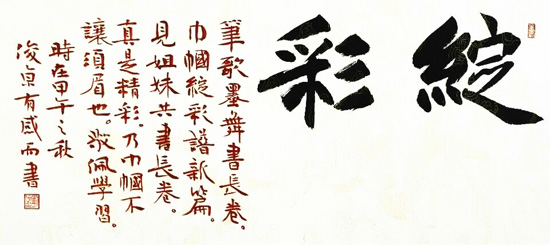 綻彩
筆歌墨舞書長卷。
巾幗綻彩譜新篇。
見姐妹共書長卷。
真是精彩。乃巾幗不
讓須眉也。敬佩學習。
時在甲午之秋
俊貞有感而書